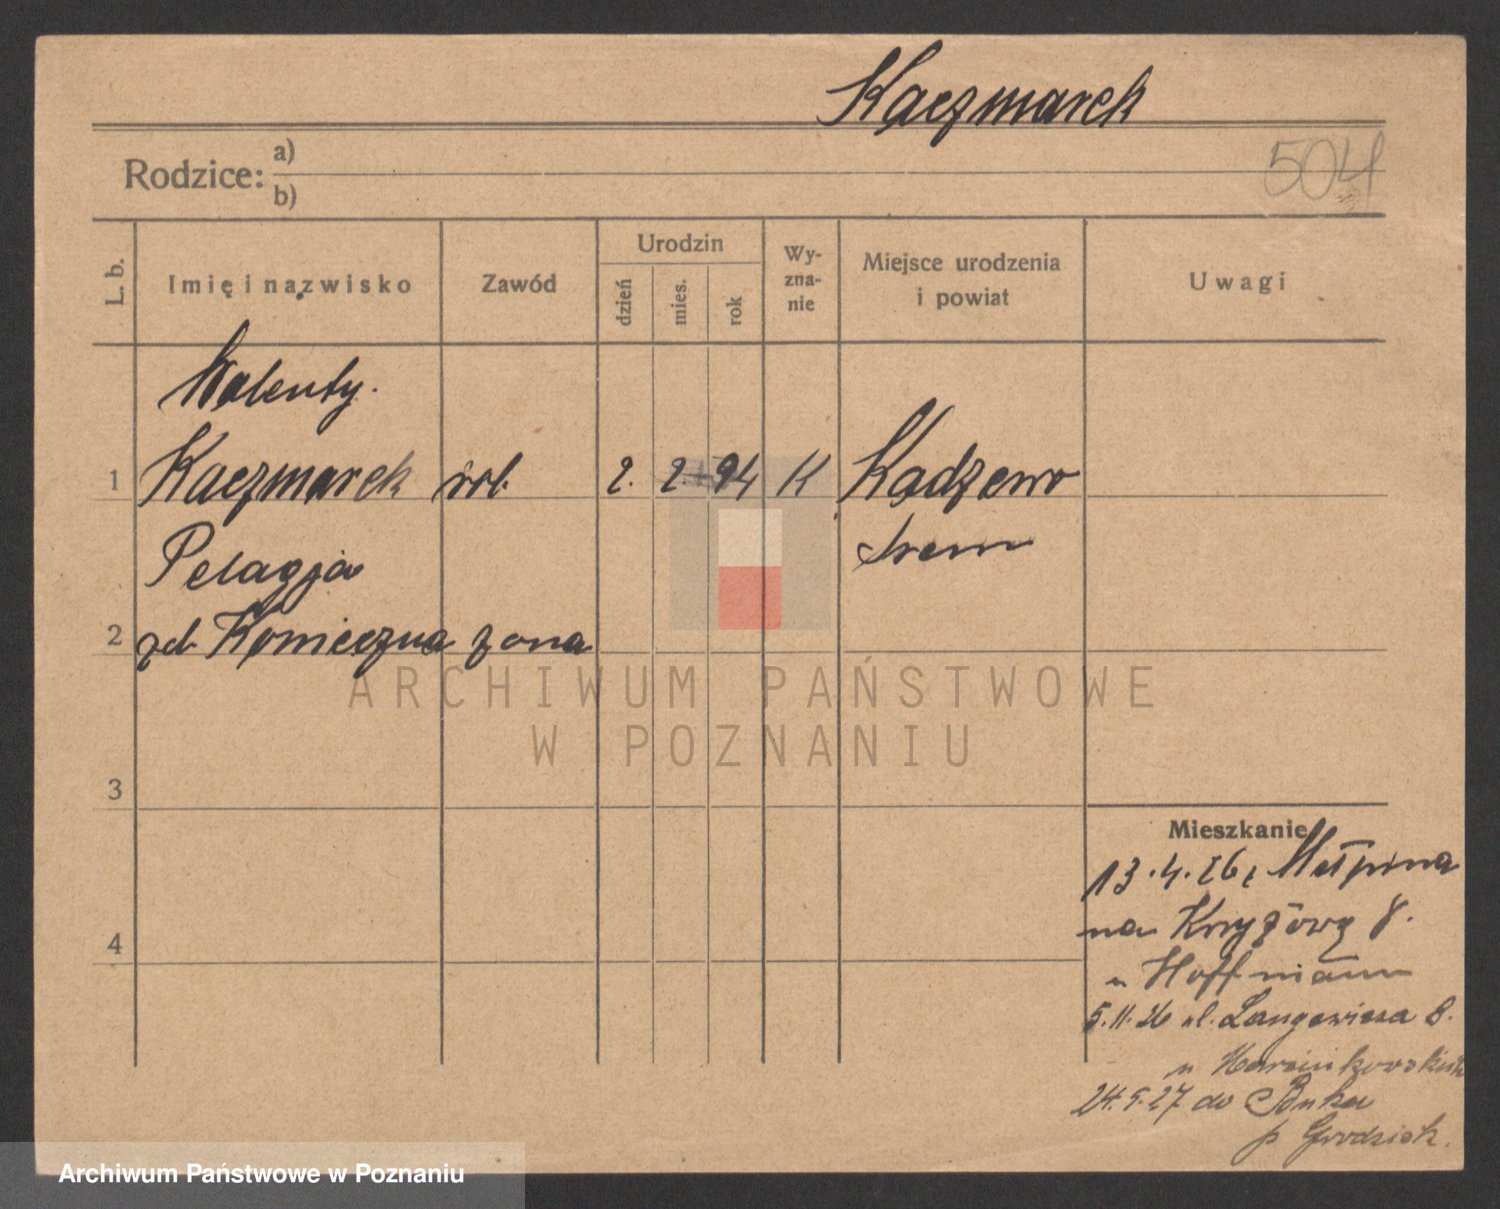 Kaczmarek
504
Rodzice: a)
b)
L. b. Imię i nazwisko Zawód Urodzin dzień mies. rok Wy-zna-nie Miejsce urodzenia i powiat Uwagi
Walenty.
1 Kaczmarek rob. 2. 2. 94 K Kadzewo
Pelagja Srem
2 zd. Konieczna żona
ARCHIWUM PAŃSTWOWE
W POZNANIU
3
Mieszkanie
13.4.26 z Mełpina
na Krzyżową 8.
4
u Hoffmann
5.11.26 ul. Langewicza 8.
u Marcinkowskich
24.5.27 do Buka
p Grodzisk.
Archiwum Państwowe w Poznaniu